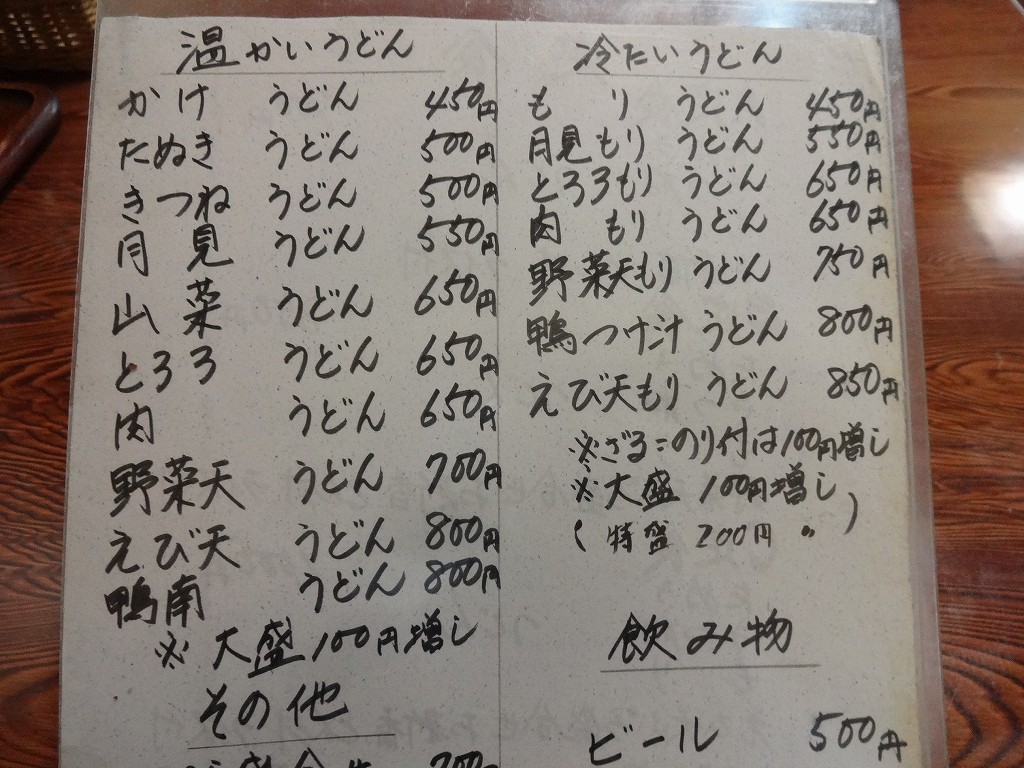 温かいうどん
かけ うどん 450円
たぬき うどん 500円
きつね うどん 500円
月見 うどん 550円
山菜 うどん 650円
とろろ うどん 650円
肉 うどん 650円
野菜天 うどん 700円
えび天 うどん 800円
鴨南 うどん 800円
※ 大盛 100円増し
その他
冷たいうどん
もり うどん 450円
月見もり うどん 550円
とろろもり うどん 650円
肉もり うどん 650円
野菜天もり うどん 750円
鴨つけ汁 うどん 800円
えび天もり うどん 850円
※ざる=のり付は100円増し
※大盛 100円増し
(特盛 200円 〃)
飲み物
ビール 500円